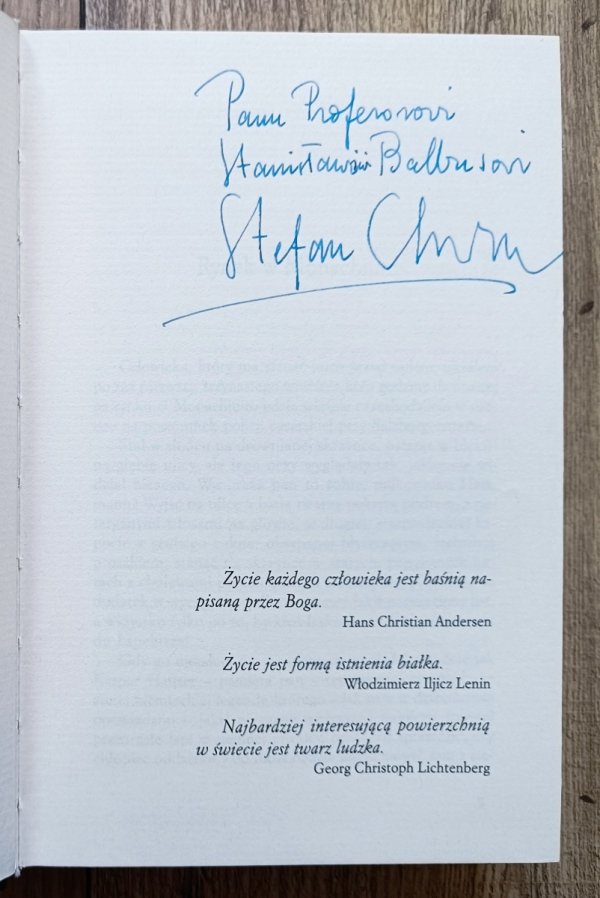 Panu Profesorowi
Stanisławowi Balbusowi
Stefan Chwin
Życie każdego człowieka jest baśnią na-
pisaną przez Boga.
Hans Christian Andersen
Życie jest formą istnienia białka.
Włodzimierz Iljicz Lenin
Najbardziej interesującą powierzchnią
w świecie jest twarz ludzka.
Georg Christoph Lichtenberg